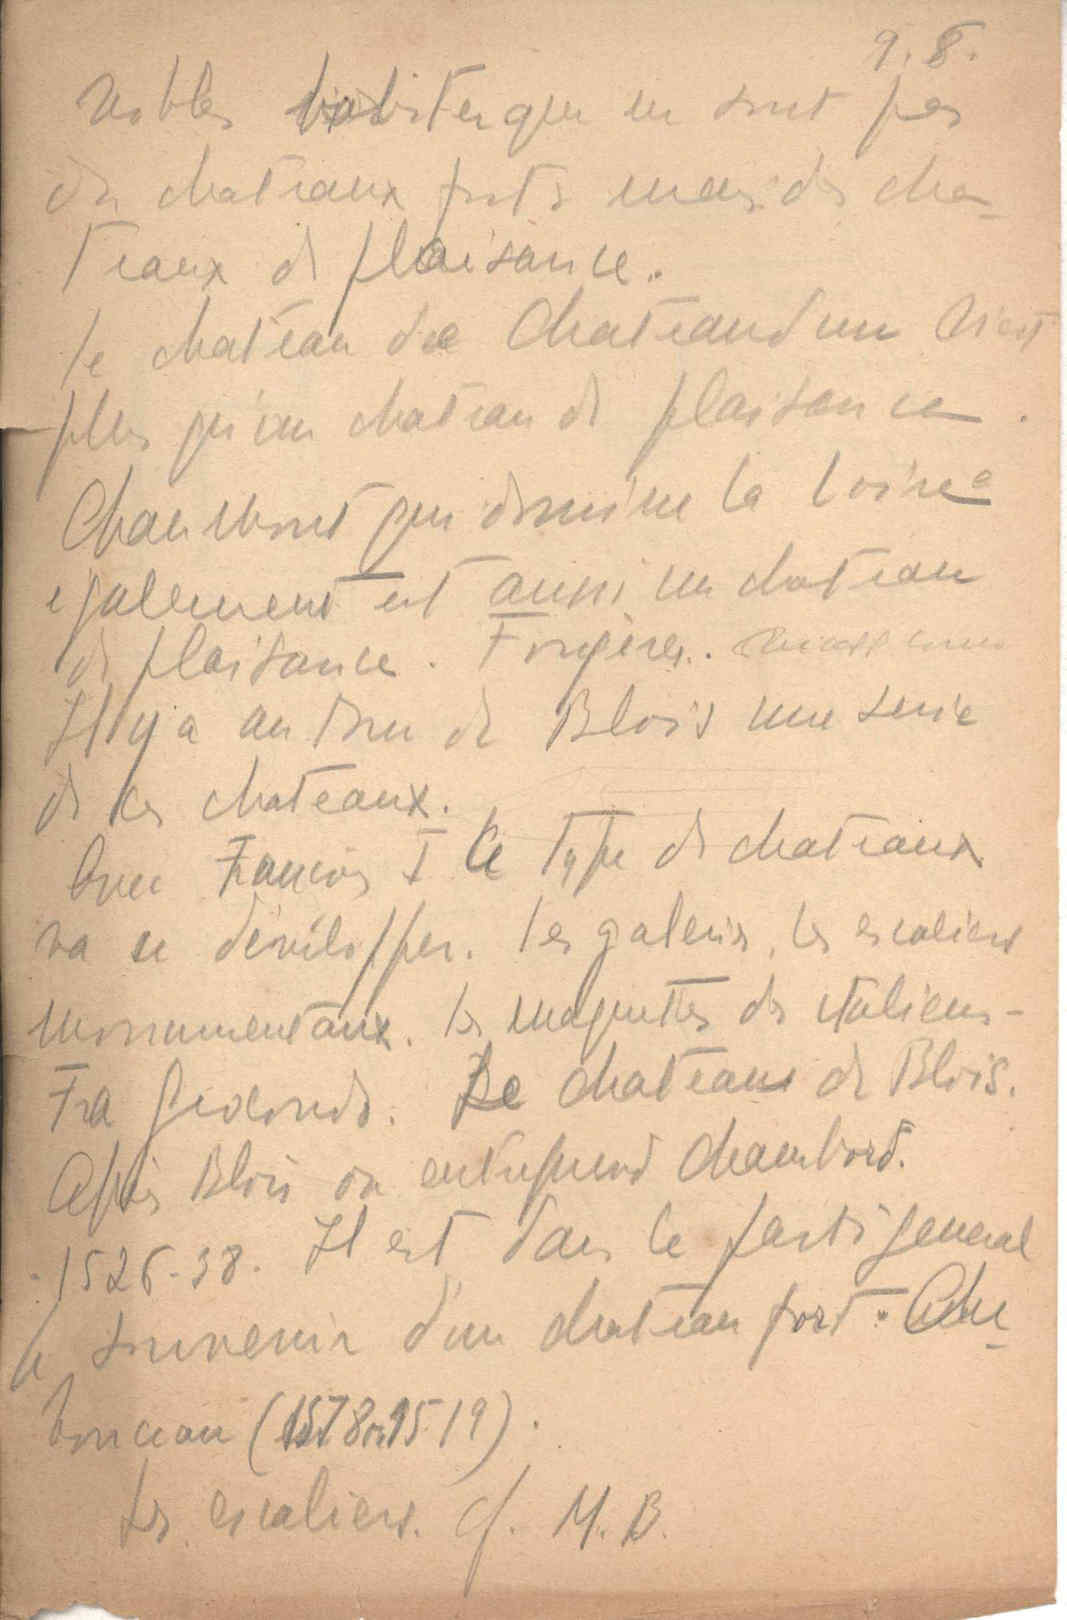 9. 8.
nobles habiter qui ne sont pas
des chateaux forts mais des cha-
teaux de plaisance.
le chateau de Chateaudun n'est
plus qu'un chateau de plaisance.
Chaumont qui domine la Loire
egalement est aussi un chateau
de plaisance. Fougères.
Il y a autour de Blois une serie
de ces chateaux.
Avec Francois I Ce type de chateaux
va se développer. Les galeries, les escaliers
monumentaux. les maquettes des italiens-
Fra Giocondo. Le chateau de Blois.
Après Blois on entreprend Chambord.
1526-38. Il est dans le parti general
le souvenir d'un chateau fort.
(1519).
Les escaliers. cf. M. B.